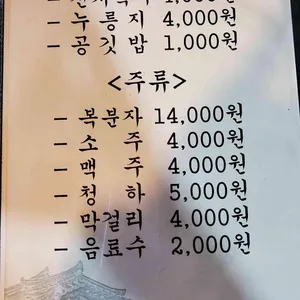 - 누룽지 4,000원
- 공깃밥 1,000원
<주류>
- 복분자 14,000원
- 소주 4,000원
- 맥주 4,000원
- 청하 5,000원
- 막걸리 4,000원
- 음료수 2,000원